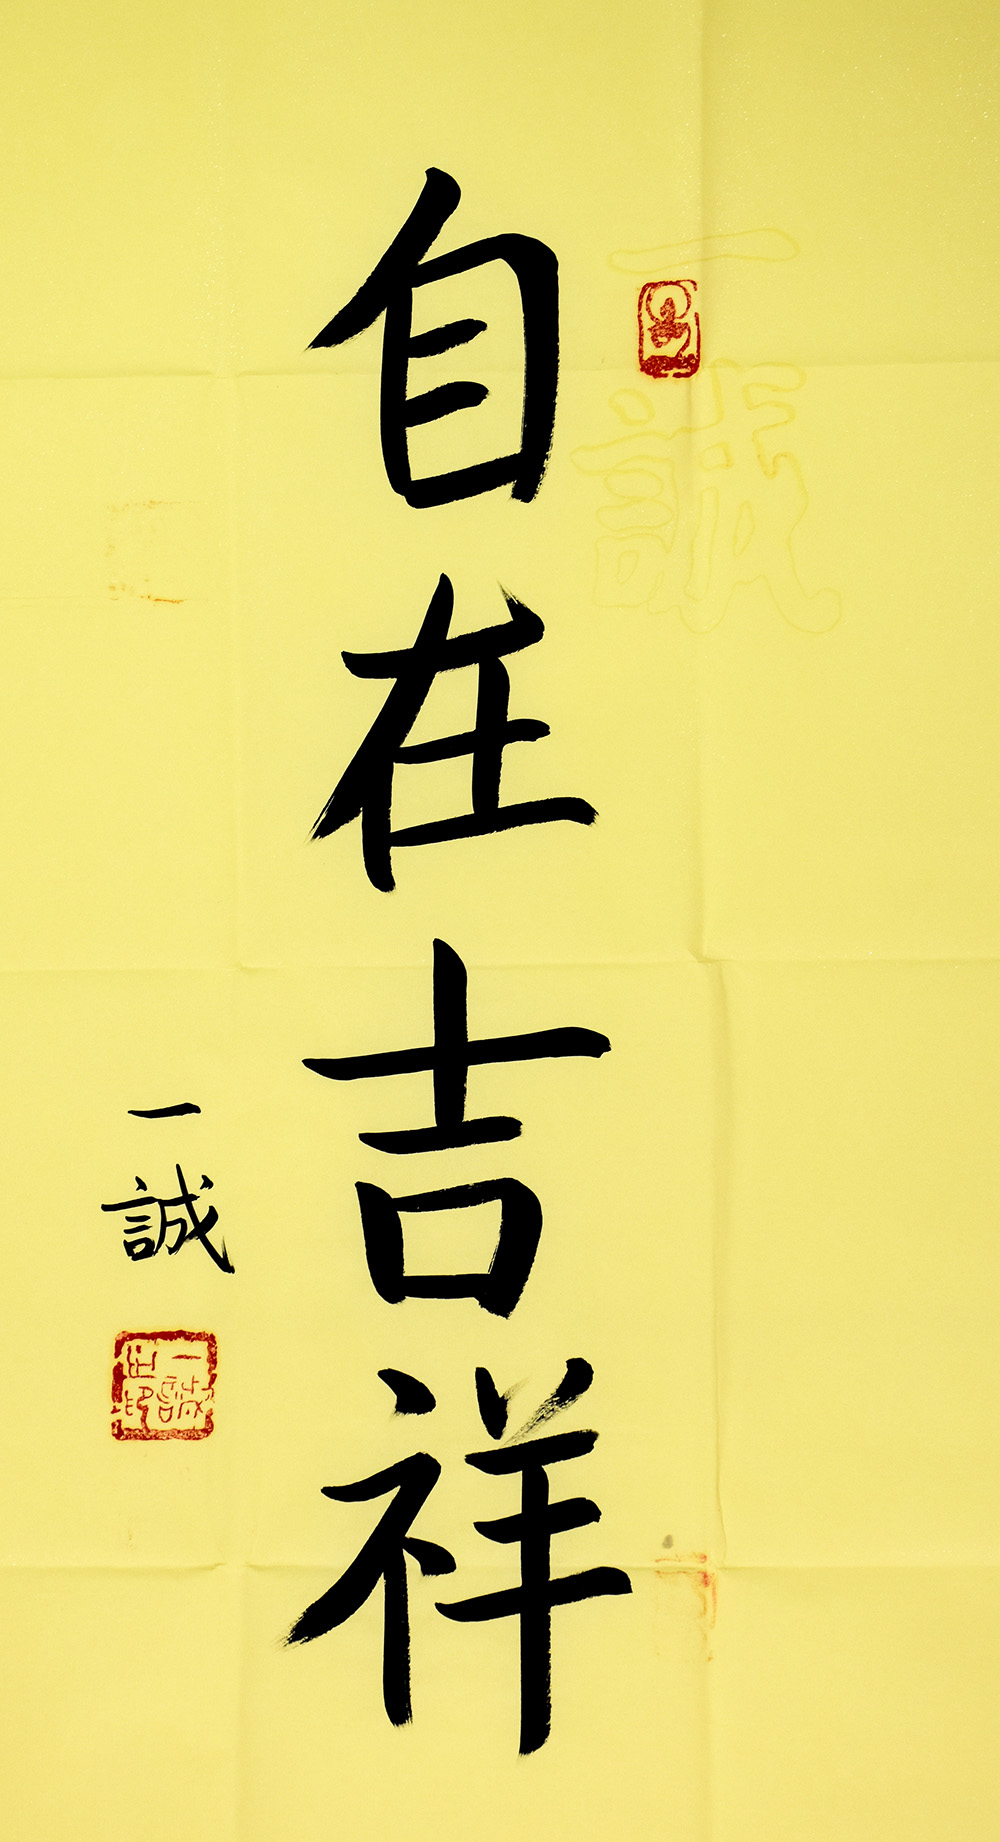 自在吉祥
一誠
一誠之印
一誠